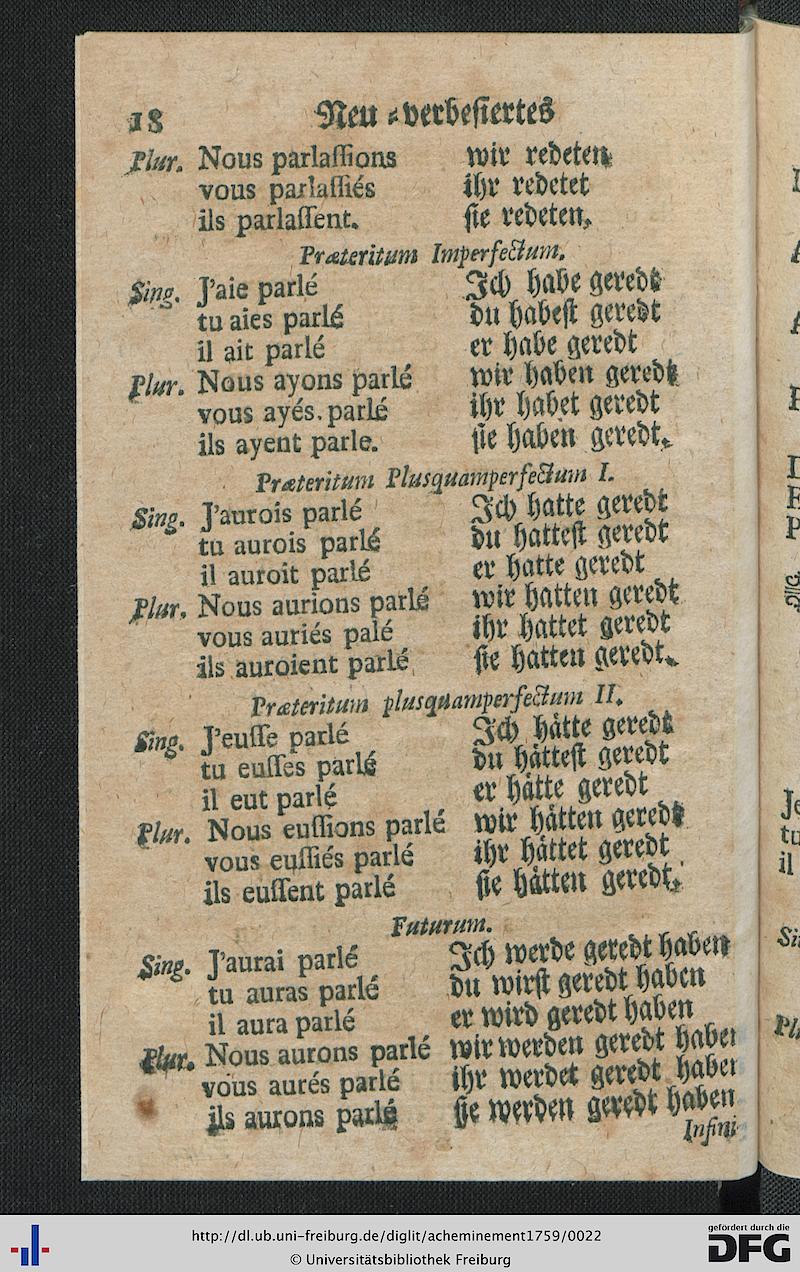 18 Neu⸗verbeſiertes
Plur. Nous parlaſſions wir redeten,
vous parlaſſiés ihr redetet
ils parlaſſent. ſie redeten.
Præteritum Imperfectum.
Sing. J'aie parlé Ich habe geredt
tu aies parlé du habeſt geredt
il ait parlé er habe geredt
Plur. Nous ayons parlé wir haben geredt
vous ayés. parlé ihr habet geredt
ils ayent parle. ſie haben geredt.
Præteritum Plusquamperfectum I.
Sing. J'aurois parlé Ich hatte geredt
tu aurois parlé du hatteſt geredt
il auroit parlé er hatte geredt
Plur. Nous aurions parlé wir hatten geredt
vous auriés palé ihr hattet geredt
ils auroient parlé ſie hatten geredt.
Præteritum plusquamperfectum II.
Sing. J'euſſe parlé Ich hätte geredt
tu euſſes parlé du hätteſt geredt
il eut parlé er hätte geredt
Plur. Nous euſſions parlé wir hätten geredt
vous euſſiés parlé ihr hättet geredt
ils euſſent parlé ſie hätten geredt.
Futurum.
Sing. J'aurai parlé Ich werde geredt haben
tu auras parlé du wirſt geredt haben
il aura parlé er wird geredt haben
Plur. Nous aurons parlé wir werden geredt haben
vous aurés parlé ihr werdet geredt haben
ils aurons parlé ſie werden geredt haben
Infini
http://dl.ub.uni-freiburg.de/diglit/acheminement1759/0022
© Universitätsbibliothek Freiburg
gefördert durch die
DFG